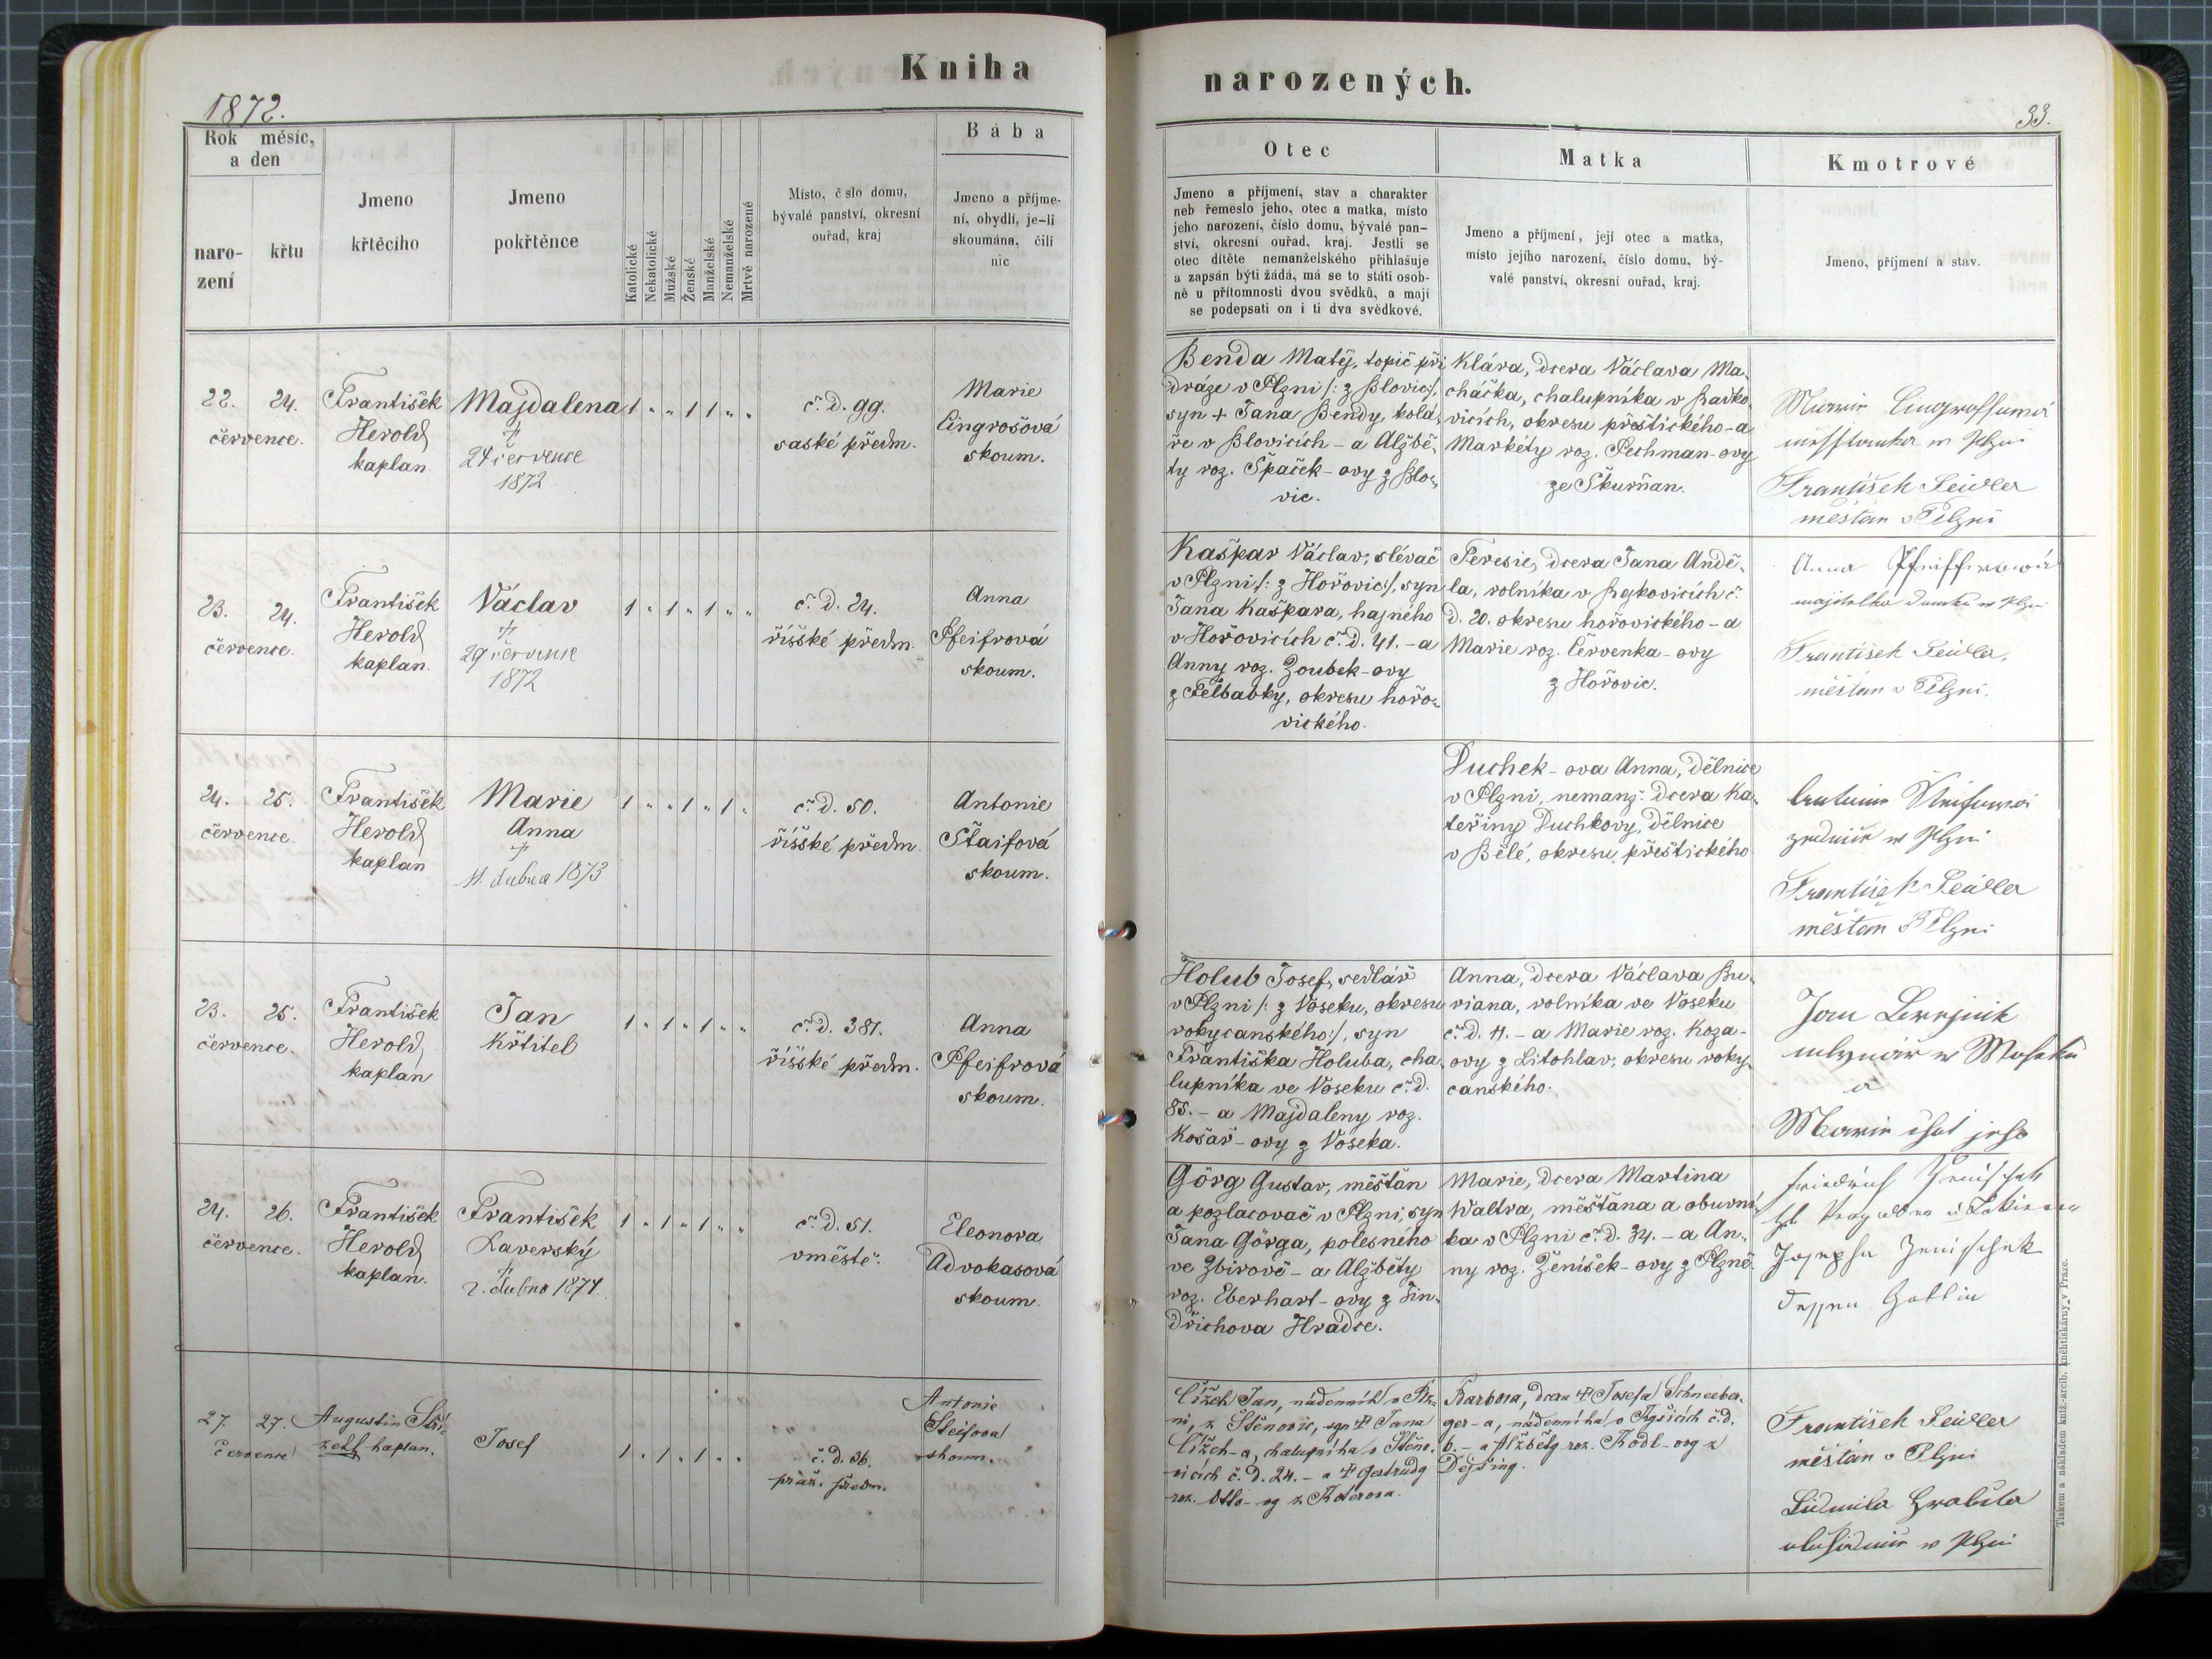 Kniha
1872.
Rok měsíc,
a den
naro-
zení
křtu
Jmeno
křtěcího
Jmeno
pokřtěnce
Katolické
Nekatolické
Mužské
Ženské
Manželské
Nemanželské
Mrtvě narozené
Místo, č slo domu,
bývalé panství, okresní
ouřad, kraj
Bába
Jmeno a příjme-
ní, obydlí, je-li
skoumána, čili
nic
22. 24.
července.
František
Herold
kaplan.
Majdalena
†
24 července
1872
1 " " 1 1 " "
č. d. 99.
saské předm.
Marie
Lingrošová
skoum.
23. 24.
července.
František
Herold
kaplan.
Václav
†
29 července
1872
1 " 1 " 1 " "
č. d. 24.
říšské předm.
Anna
Pfeifrová
skoum.
24. 25.
července.
František
Herold
kaplan
Marie
Anna
†
11. dubna 1873
1 " " 1 " 1 "
č. d. 50.
říšské předm.
Antonie
Štaifová
skoum.
23. 25.
července.
František
Herold,
kaplan
Jan
Křtitel
1 " 1 " 1 " "
č. d. 381.
říšské předm.
Anna
Pfeifrová
skoum.
24. 26.
července.
František
Herold
kaplan.
František
Xaverský
†
2. dubna 1874.
1 " 1 " 1 " "
č. d. 51.
v městě.
Eleonora
Advokasová
skoum.
27. 27.
července
Augustin Stří-
zell kaplan.
Josef
1 " 1 " 1 " "
č. d. 36.
praž. předm.
Antonie
Šteifova
skoum.
narozených.
33.
Otec
Jmeno a příjmení, stav a charakter
neb řemeslo jeho, otec a matka, místo
jeho narození, číslo domu, bývalé pan-
ství, okresní ouřad, kraj. Jestli se
otec dítěte nemanželského přihlašuje
a zapsán býti žádá, má se to státi osob-
ně u přítomnosti dvou svědků, a mají
se podepsati on i ti dva svědkové.
Matka
Jmeno a příjmení, její otec a matka,
místo jejího narození, číslo domu, bý-
valé panství, okresní ouřad, kraj.
Kmotrové
Jmeno, příjmení a stav.
Benda Matěj, topič při
dráze v Plzni /: z Blovic:/,
syn + Jana Bendy, kolá-
ře v Blovicích - a Alžbě-
ty roz. Špaček-ovy z Blo-
vic.
Klára, dcera Václava Ma-
cháčka, chalupníka v Radko-
vicích, okresu přeštického - a
Markéty roz. Pechman-ovy
ze Skurňan.
František Seidler
měšťan v Plzni
Kašpar Václav, slévač
v Plzni /: z Hořovic:/, syn
Jana Kašpara, hajného
v Hořovicích č. d. 41. - a
Anny roz. Zoubek-ovy
z Felbabky, okresu hořo-
vického.
Teresie, dcera Jana Andě-
la, rolníka v Rykovicích č.
d. 20. okresu hořovického - a
Marie roz. Červenka-ovy
z Hořovic.
Anna Pfeifferová
František Seidler,
měšťan v Plzni.
Duchek-ova Anna, dělnice
v Plzni, nemanž. dcera Ka-
teřiny Duchkovy, dělnice
v Bělé, okresu přeštického
František Seidler
měšťan v Plzni
Holub Josef, sedlář
v Plzni /: z Voseku, okresu
rokycanského:/, syn
Františka Holuba, cha-
lupníka ve Voseku č. d.
85. - a Majdaleny roz.
Košař-ovy z Voseka.
Anna, dcera Václava Bu-
riana, rolníka ve Voseku
č. d. 11. - a Marie roz. Koza-
ovy z Litohlav, okresu roky-
canského.
Jan
mlynář w
a
Marie
Görg Gustav, měšťan
a pozlacovač v Plzni, syn
Jana Görga, polesného
ve Zbirově - a Alžběty
roz. Eberhart-ovy z Jin-
dřichova Hradce.
Marie, dcera Martina
Waltra, měšťana a obuvní-
ka v Plzni č. d. 34. - a An-
ny roz. Ženíšek-ovy z Plzně.
Josepha Jenischek
dessen Gattin
Čížek Jan, nádenník v Plz-
ni, z Štěnovic, syn † Jana
Čížek-a, chalupníka v Štěno-
vicích č. d. 24. - a † Gertrudy
roz. Otto-vy z Koterova.
Barbora, dcera † Josefa Schneeber-
ger-a, nádenníka v Kyšicích č. d.
6. - a Alžběty roz. Rödl-ovy z
Dejšiny.
František Seidler
měšťan v Plzni
Ludmila
w Plzni
Tiskem a nákladem kníž. arcib. kněhtiskárny v Praze.